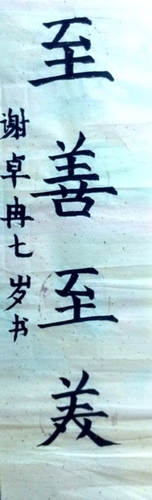 至善至美
谢卓冉七岁书